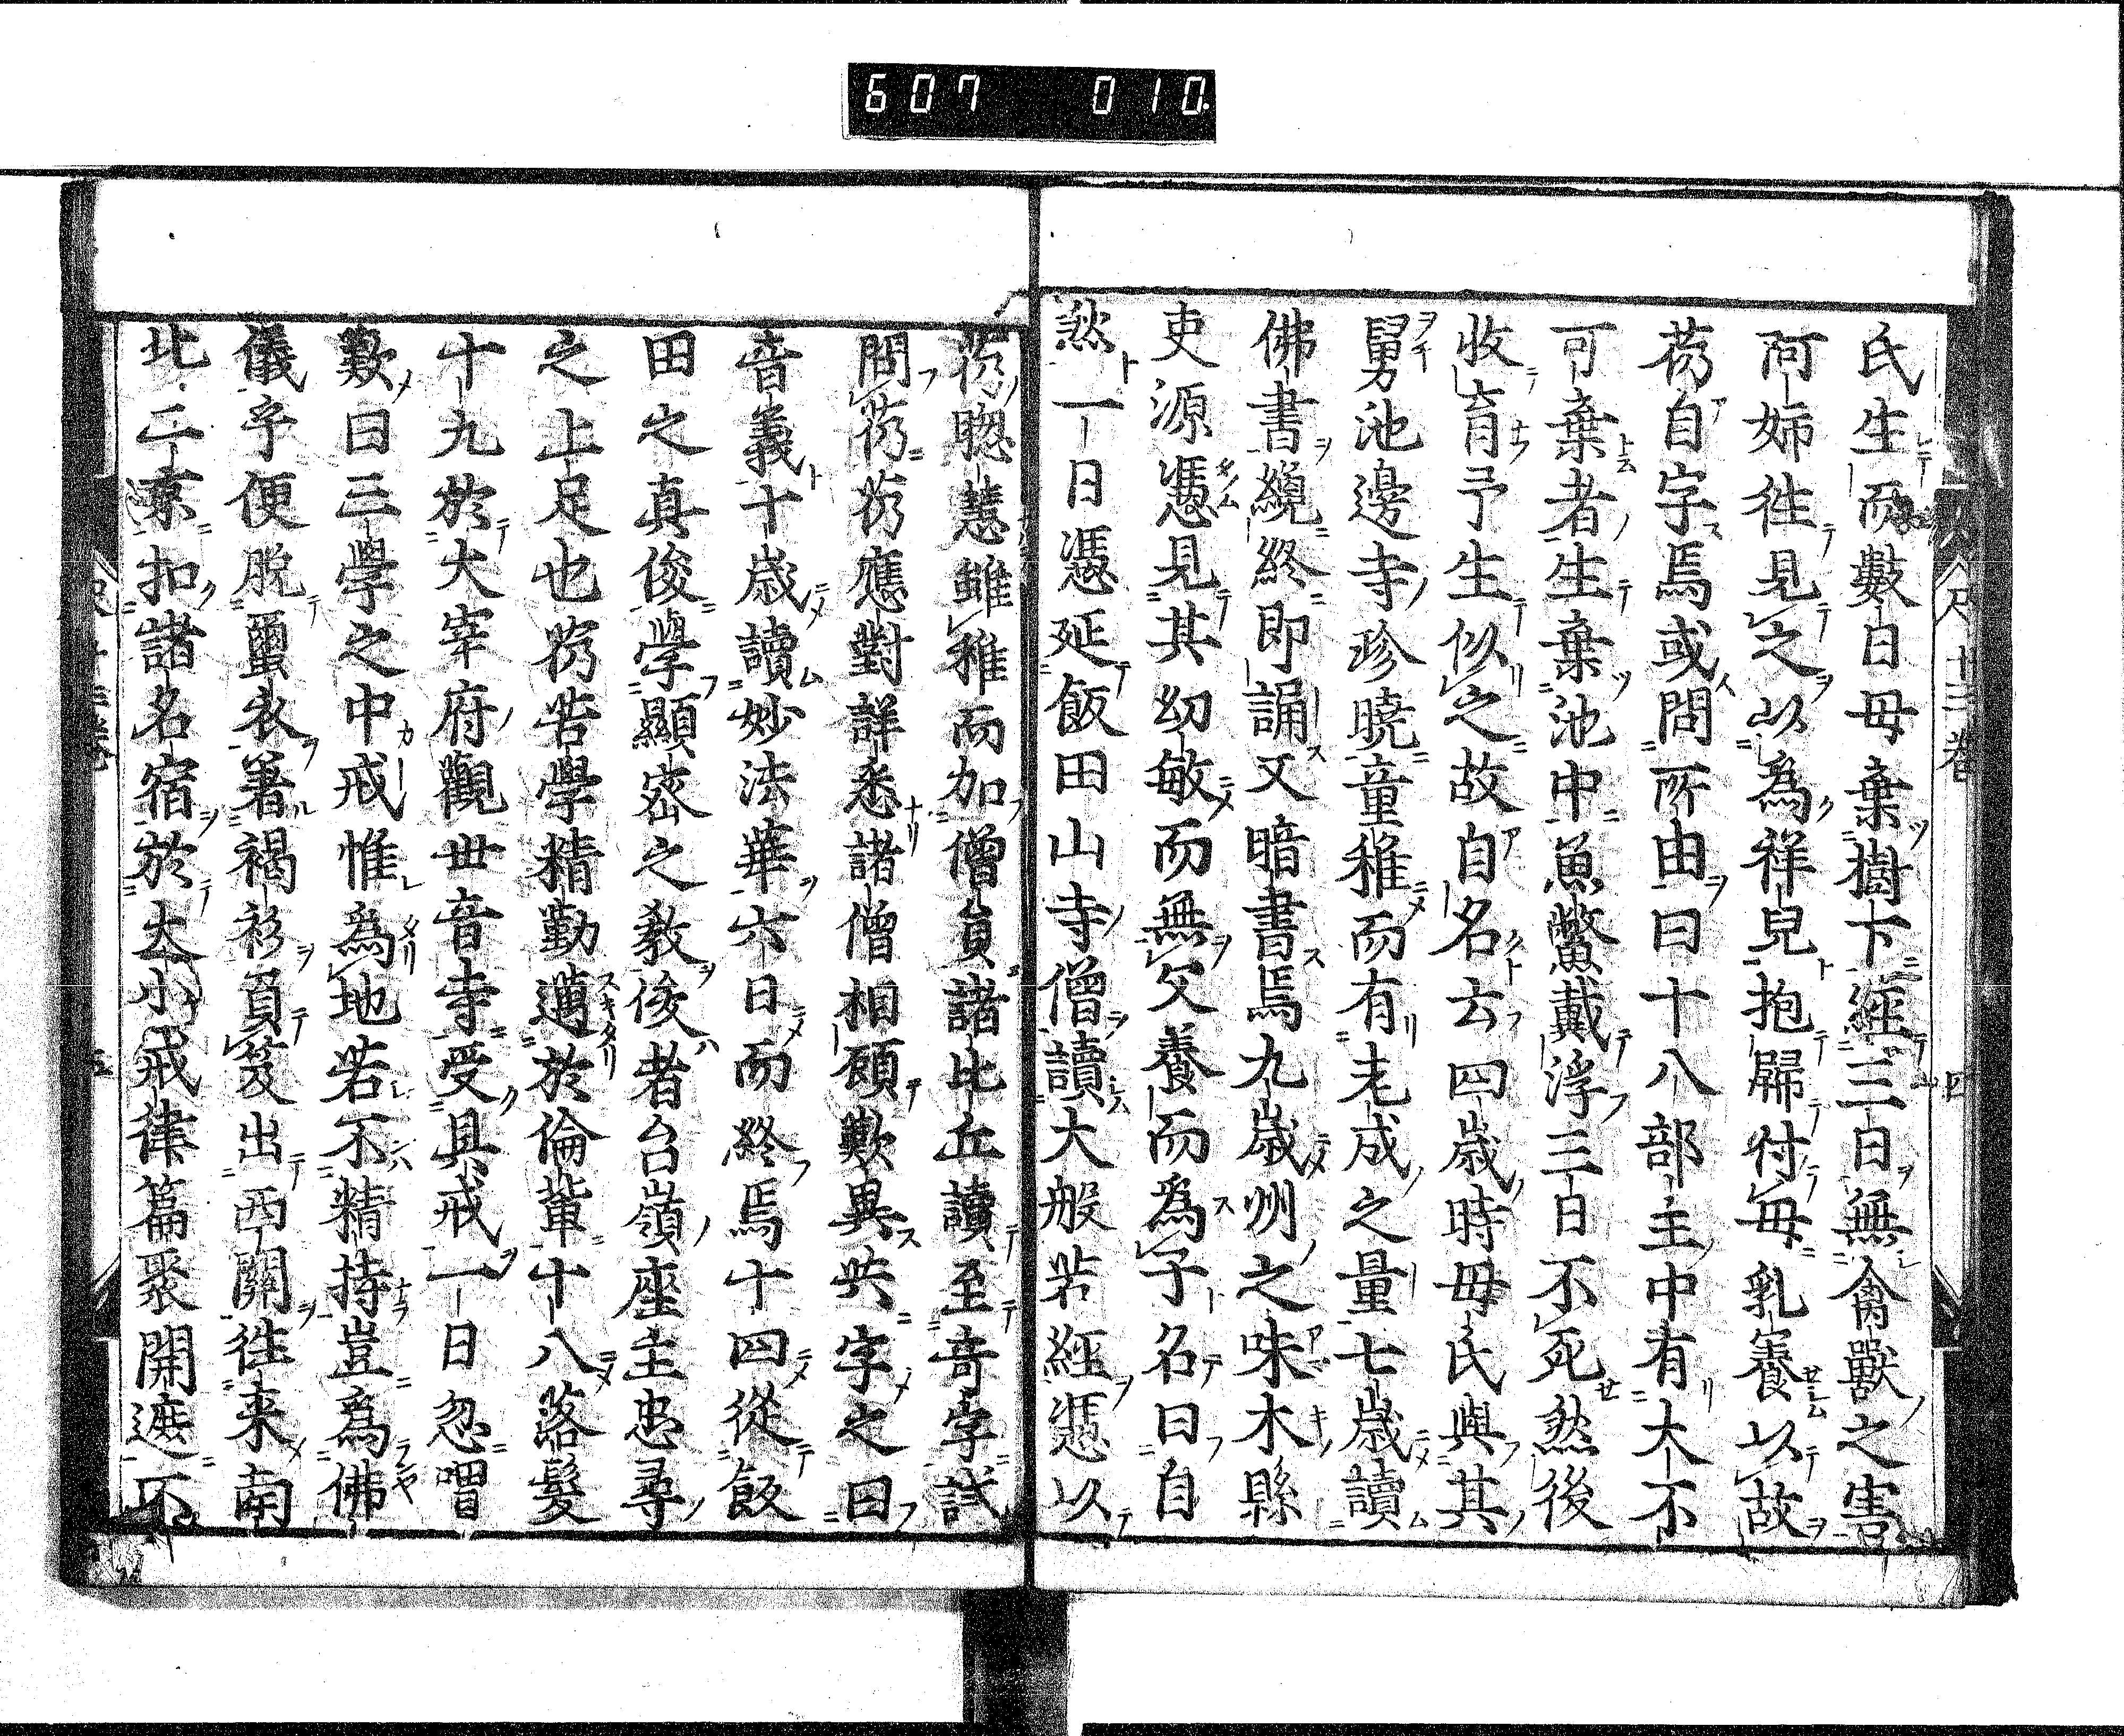 607 010.
氏生而數日母棄樹下經三日無禽獸之害
阿姉徃見之以為祥兒抱歸付母乳養以故
芿自字焉或問所由曰十八部主中有大不
可棄者生棄池中魚鱉戴浮三日不死然後
收育予生似之故自名云四歳時母氏與其
舅池邊寺珍曉童稚而有老成之量七歳讀
佛書纔終即誦又暗書焉九歳州之味木縣
吏源憑見其幼敏而無父養而為子名曰自
然一日憑延飯田山寺僧讀大般若經憑以
芿聰慧雖稚而加僧員諸比丘讀至奇字試
問芿芿應對詳悉諸僧相顧歎異共字之曰
音義十歳讀妙法華六日而終焉十四從飯
田之真俊學顯密之教俊者台嶺座主忠尋
之上足也芿苦學精勤邁於倫輩十八落髮
十九於大宰府觀世音寺受具戒一日忽喟
歎曰三學之中戒惟為地若不精持豈為佛
儀乎便脱蠶衣著褐衫負笈出西關徃来南
北二京扣諸名宿於大小戒律篇聚開遮不
十三卷 四